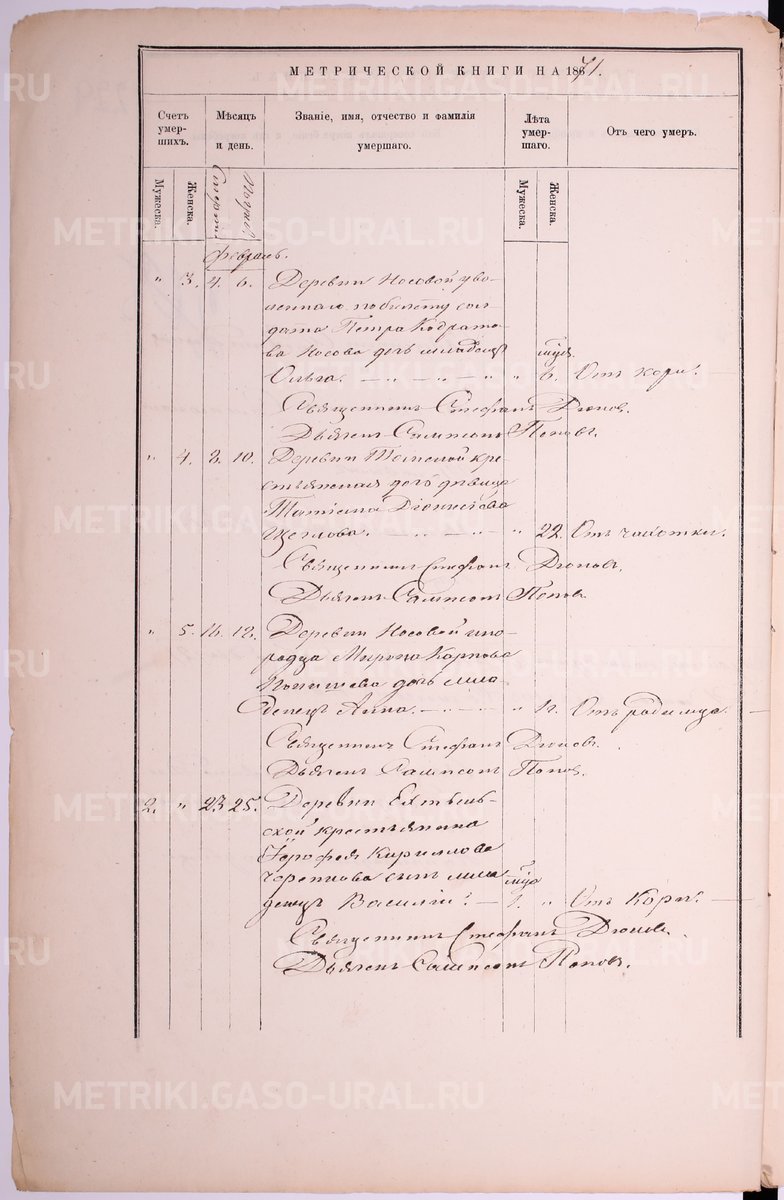 МЕТРИЧЕСКОЙ КНИГИ НА 1871.
Счетъ умер- шихъ.
Мѣсяцъ и день.
Званіе, имя, отчество и фамилія умершаго.
Лѣта умер- шаго.
Отъ чего умеръ.
Мужеска.
Женска.
Смерти
Погреб.
Мужеска.
Женска.
Февраль.
" 3. 4. 6. Деревни Носовой уво-
леннаго по билету сол-
дата Петра Кодрато-
ва Носова дочь младенец
Ольга. " 6. Отъ кори.
Священникъ Стефанъ Дюковъ.
Дьячекъ Сампсонъ Поповъ.
" 4. 8. 10. Деревни кре-
стьянская дочь дѣвица
Татіана Діонисіева
Щеглова. " 22. Отъ чахотки.
Священникъ Стефанъ Дюковъ.
Дьячекъ Сампсонъ Поповъ.
" 5. 16. 18. Деревни Носовой ино-
родца Мирона Карпова
дочь мла-
денец Анна. " Отъ родимца.
Священникъ Стефанъ Дюковъ.
Дьячекъ Сампсонъ Поповъ.
2. " 23 25. Деревни
ской крестьянина
Ерофея Кириллова
сынъ мла
денец Василій. " Отъ Кори.
Священникъ Стефанъ Дюковъ.
Дьячекъ Сампсонъ Поповъ.
METRIKI.GASO-URAL.RU